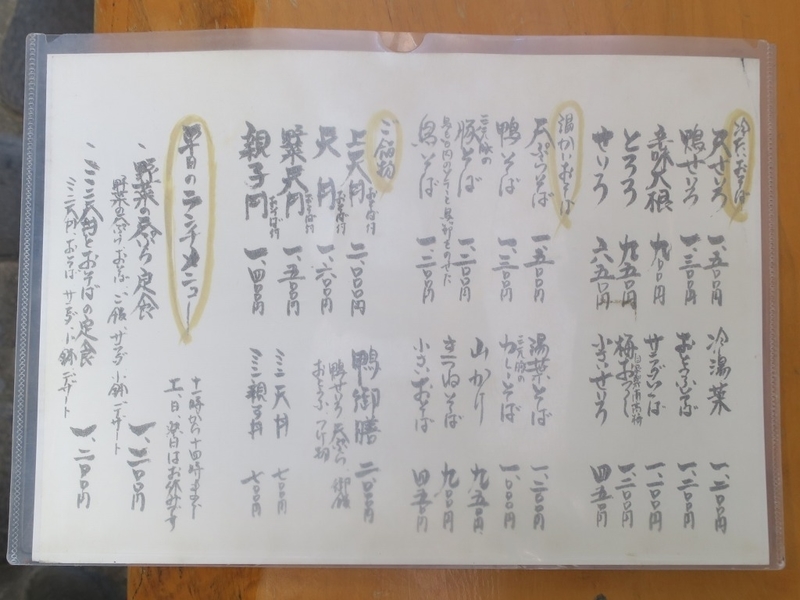 冷たいおそば
天せいろ 一、五〇〇円
鴨せいろ 一、三〇〇円
辛味大根 九〇〇円
とろろ 九五〇円
せいろ 六五〇円
冷湯葉 一、二〇〇円
おとうふそば 一、二〇〇円
サラダそば 一、二〇〇円
梅おろし 一、二〇〇円
小さいせいろ 四五〇円
温かいおそば
天ぷらそば 一、五〇〇円
鴨そば 一、三〇〇円
三元豚の
豚そば 一、三〇〇円
鳥そば 一、二〇〇円
湯葉そば 一、二〇〇円
三元豚の
カレーそば 一、〇〇〇円
山かけ 九五〇円
きつねそば 九〇〇円
小さいおそば 四五〇円
ご飯物
上天丼 おそば付 二、〇〇〇円
天丼 おそば付 一、六〇〇円
野菜天丼 おそば付 一、五〇〇円
親子丼 一、四〇〇円
鴨御膳 二、〇〇〇円
鴨せいろ 天ぷら 御飯
おとうふ つけ物
ミニ天丼 七〇〇円
ミニ親子丼 七〇〇円
平日のランチメニュー
十一時から十四時まで
土、日、祭日はお休みです
野菜の天ぷら定食 一、二〇〇円
野菜天ぷら おそば、ご飯、サラダ、小鉢、デザート
ミニ天丼とおそばの定食 一、二〇〇円
ミニ天丼、おそば、サラダ、小鉢、デザート